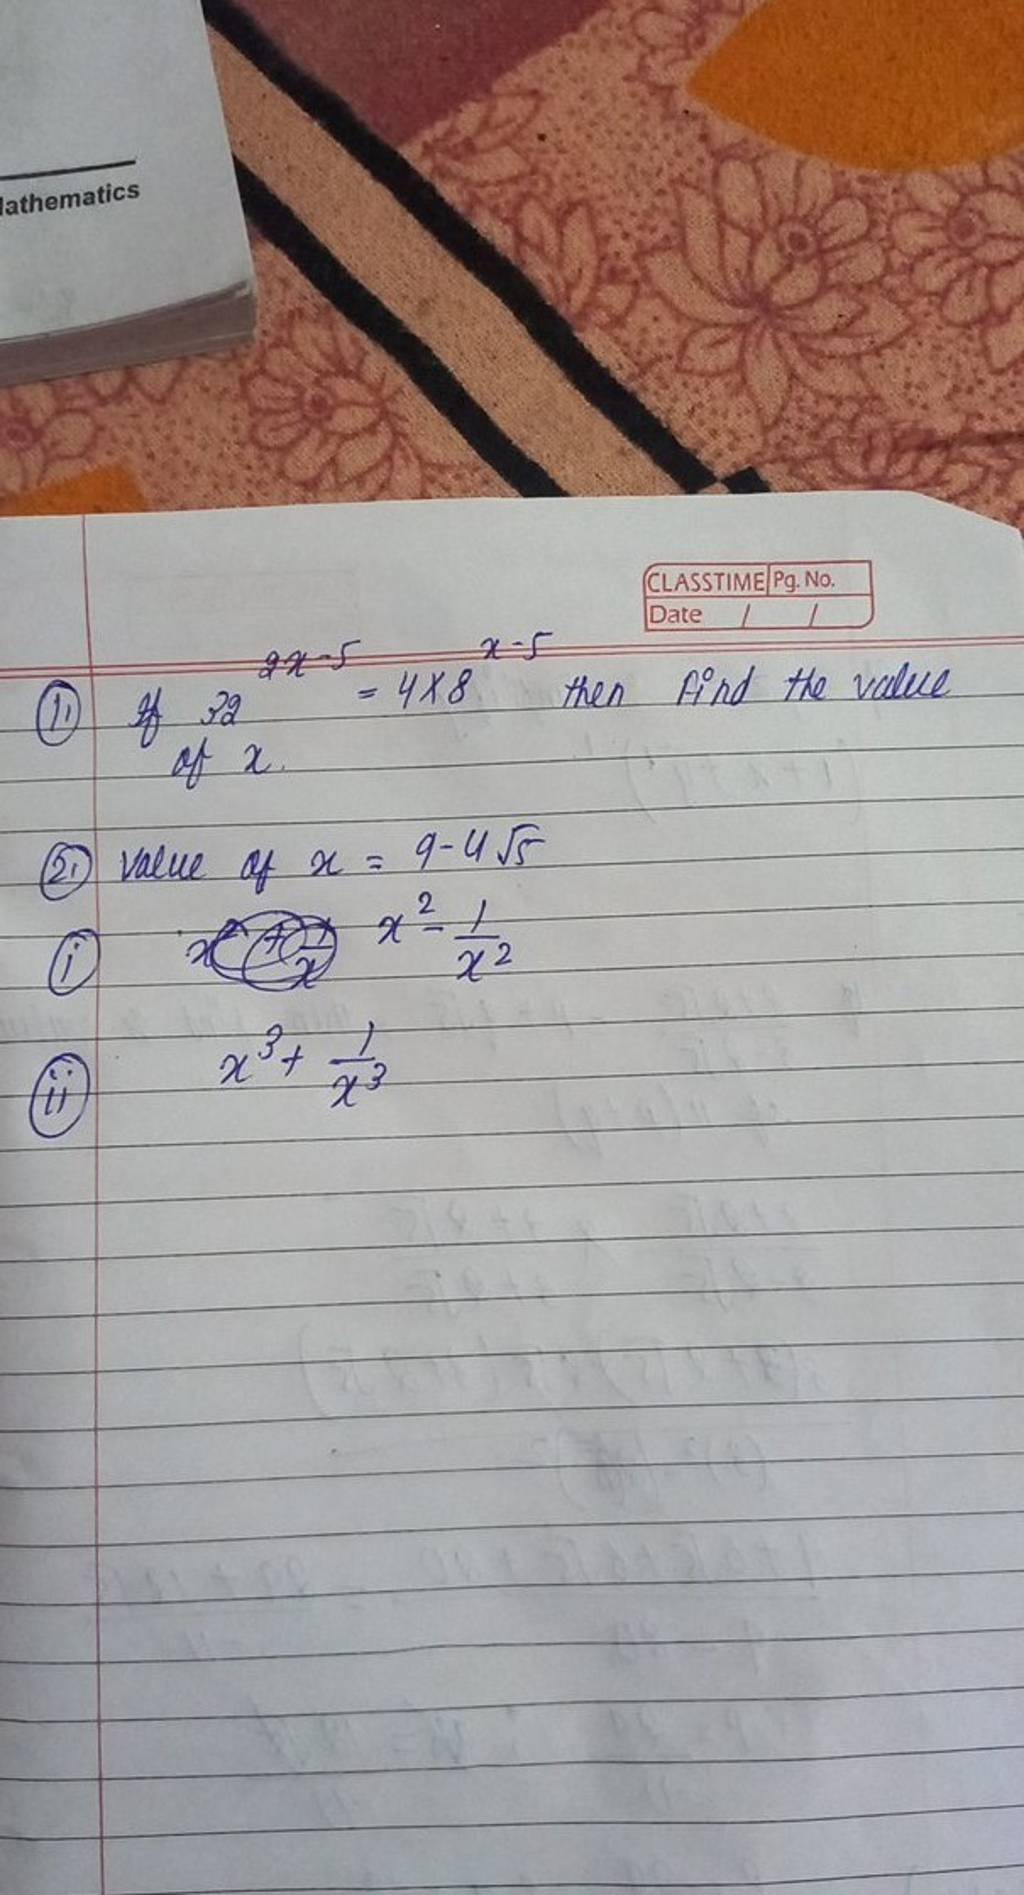 Mathematics
CLASSTIME Pg. No.
Date / /
1. If 32^{2x-5} = 4×8^{x-5} then find the value
of x.
2. value of x = 9-4√5
i x² - 1/x²
ii x³ + 1/x³